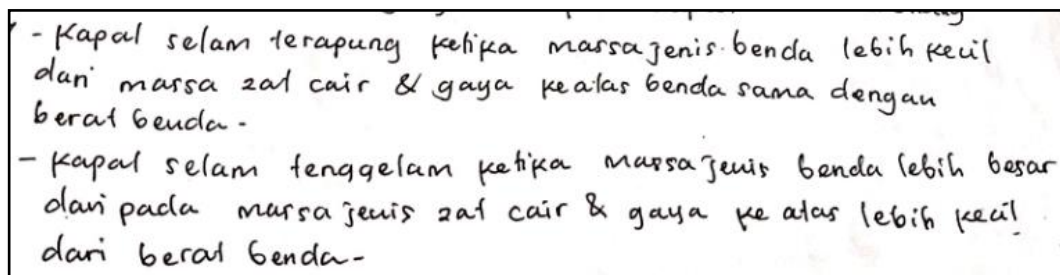 - Kapal selam terapung ketika massa jenis benda lebih kecil
dari massa zat cair & gaya keatas benda sama dengan
berat benda.
- Kapal selam tenggelam ketika massa jenis benda lebih besar
dari pada massa jenis zat cair & gaya ke atas lebih kecil
dari berat benda.